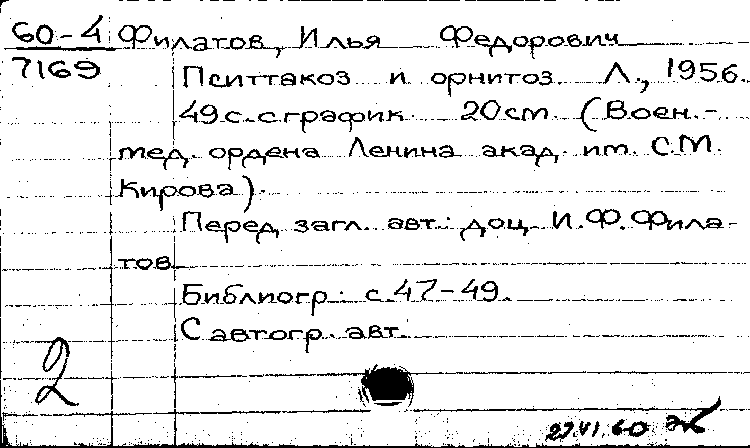 60-4 Филатов, Илья Федорович
7169 Пситтакоз и орнитоз. Л., 1956.
49 с. с график. 20 см. (Воен.-
мед. ордена Ленина акад. им. С.М.
Кирова).
Перед загл. авт.: доц. И.Ф. Фила-
тов.
Библиогр.: с. 47-49.
С автогр. авт.
2
27.VI.60